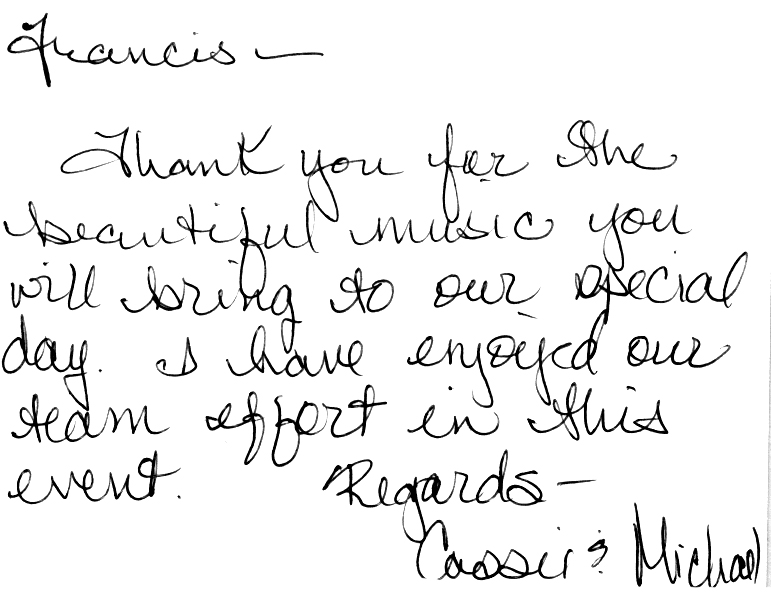 Francis —
Thank you for the
beautiful music you
will bring to our special
day. I have enjoyed our
team effort in this
event. Regards —
Cassie & Michael